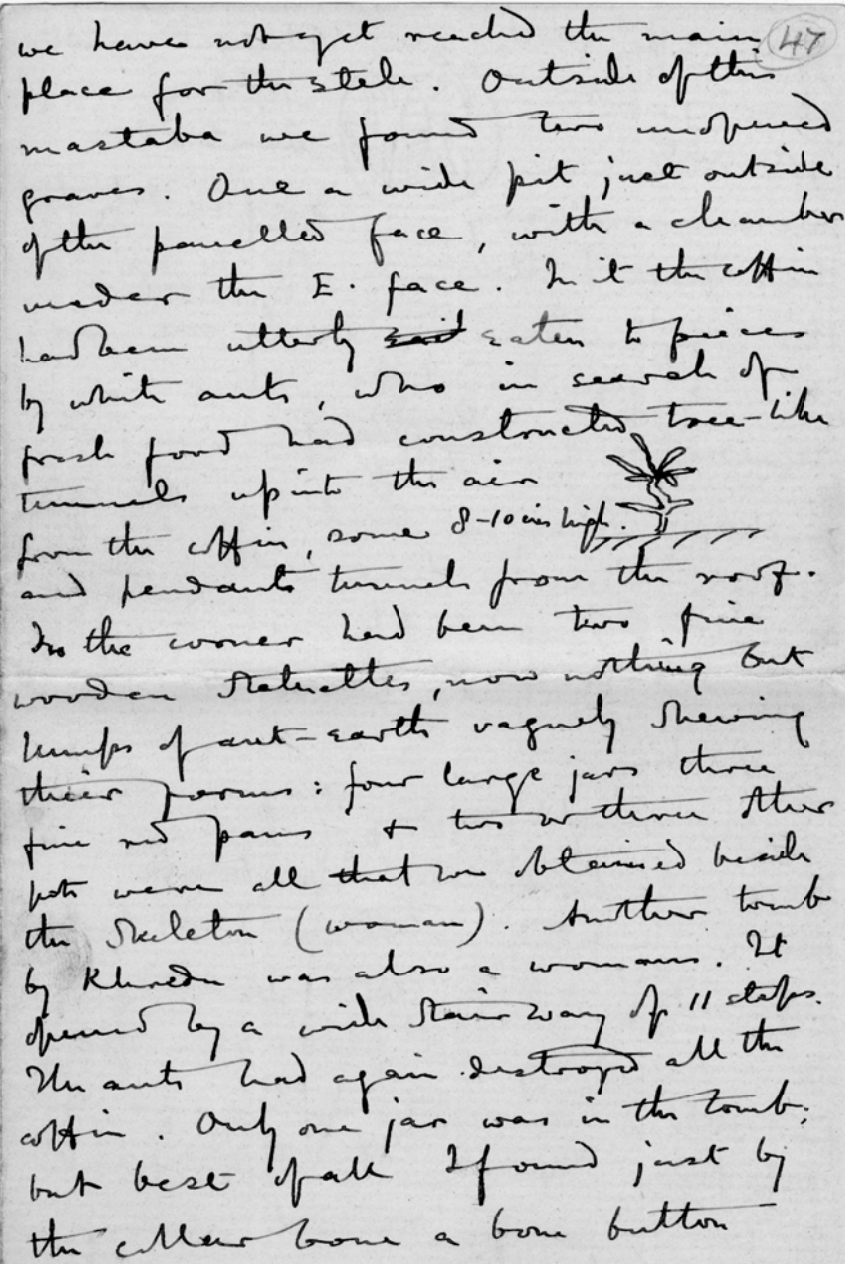 47
we have not yet reached the main
place for the stele. Outside of this
mastaba we found two unopened
graves. One a wide pit just outside
of the panelled face, with a chamber
under the E. face. In it the coffin
had been utterly eaten to pieces
by white ants, who in search of
fresh food had constructed tree-like
tunnels up into the air
from the coffin, some 8-10 ins high.
and pendants tunnels from the roof.
In the corner had been two fine
wooden statuettes, now nothing but
lumps of ant-earth vaguely shewing
their forms: four large jars three
fine red pans + two or three other
pots were all that we obtained beside
the skeleton (woman). Another tomb
by Khnedu was also a womans. It
opened by a wide stairway of 11 steps.
The ants had again destroyed all the
coffin. Only one jar was in the tomb;
but best of all I found just by
the collar bone a bone button